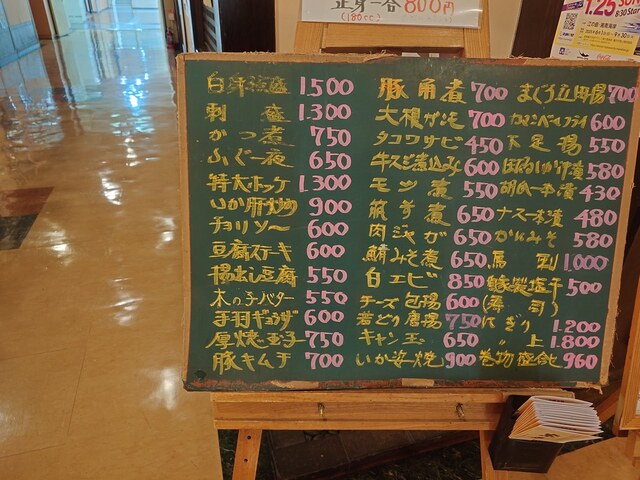 正身一合 800円
(180cc)
1.25 SUN
白身活盛 1.500
刺盛 1.300
かつ煮 750
ふぐ一夜 650
特大ホッケ 1.300
いか肝炒め 900
チョリソ〜 600
豆腐ステーキ 600
揚出し豆腐 550
木の子バター 550
手羽ギョウザ 600
厚焼玉子 750
豚キムチ 700
豚角煮 700
大根かつ 700
タコワサビ 450
牛スジ煮込み 600
モツ煮 550
筑前煮 650
肉ジャガ 650
鯖みそ煮 650
白エビ 850
チーズ包揚 600
若どり唐揚 750
キャン玉 650
いか姿焼 900
まぐろ立田揚 700
カマンベールフライ 600
下足揚 550
580
胡瓜一本漬 430
ナス一本漬 480
かにみそ 580
馬刺 1.000
自家製塩辛 500
(寿司)
にぎり 1.200
〃 上 1.800
巻物 960